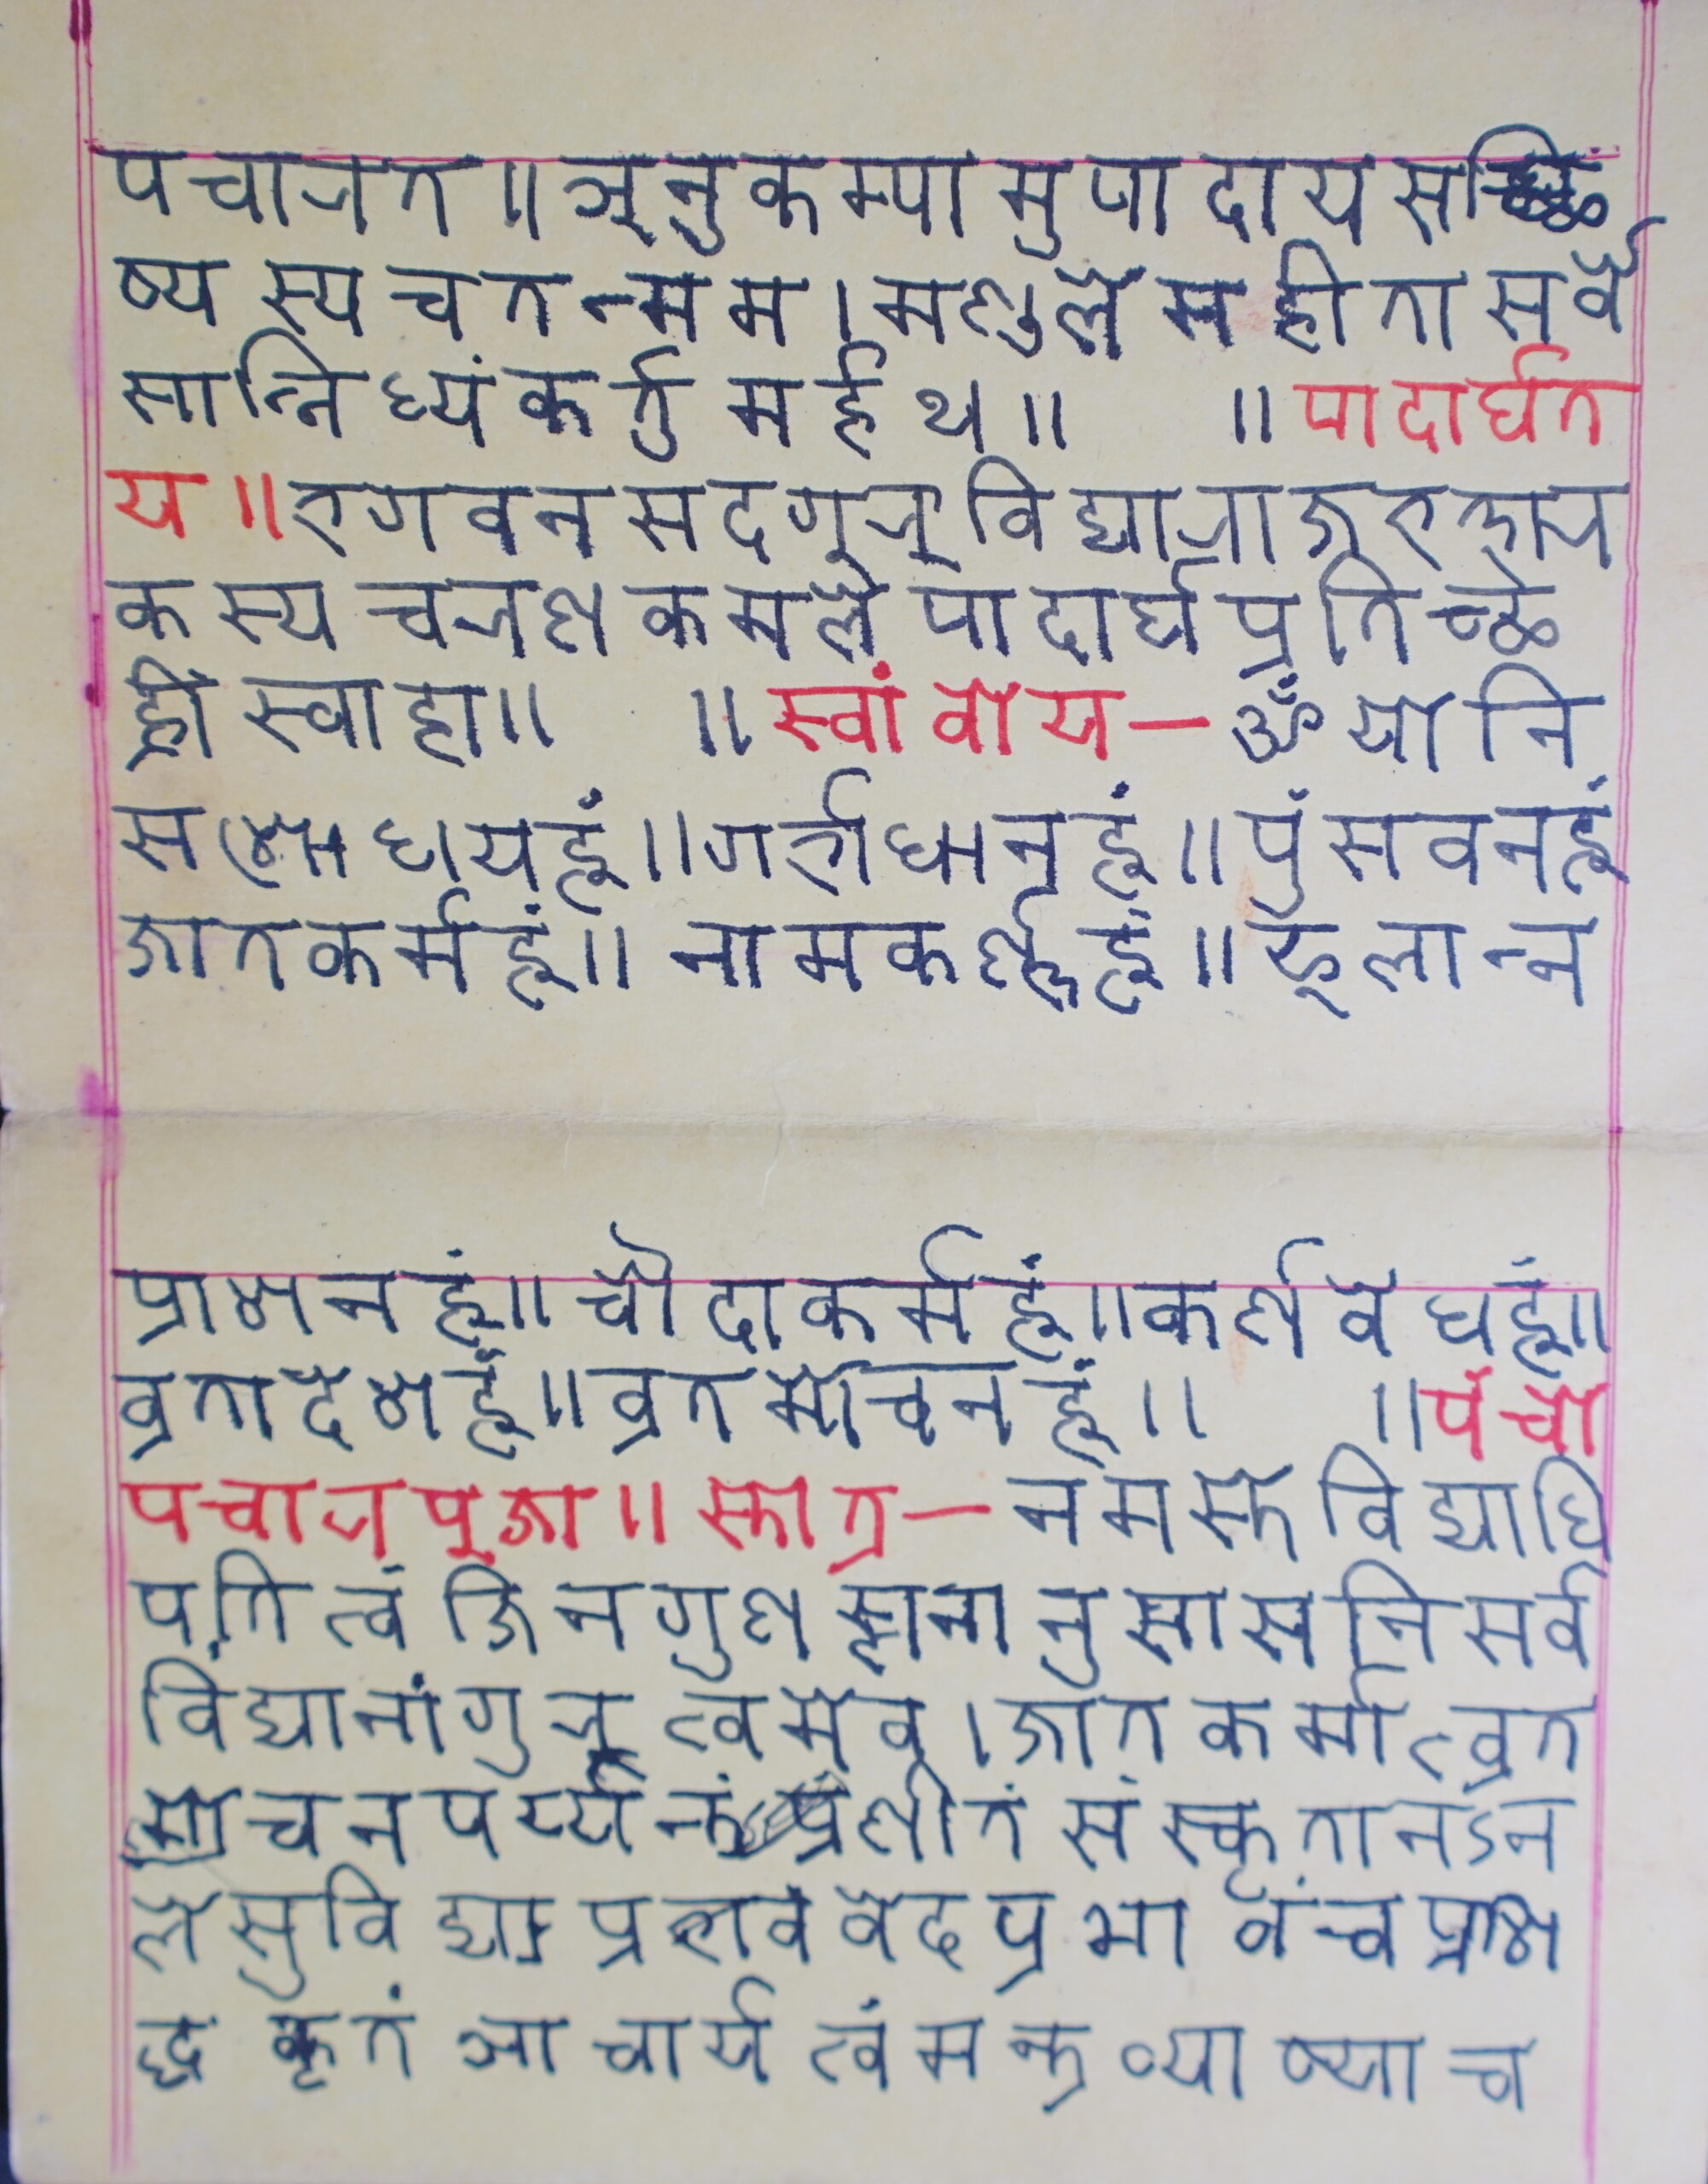 पचारत॥ अनुकम्पामुपादाय सच्छि
ष्यस्य च तन्मम। मण्डलेसहीता सर्वे
सान्निध्यं कर्तुमर्हथ॥ ॥पादार्घत
य॥ भगवन सदगुरु विद्याराजभराय
कस्य चरण कमले पादार्घ प्रतिच्छे
ह्रीं स्वाहा॥ ॥स्वां वोय— ॐ योनि
संशोधाय हूं॥ गर्भाधान हूं॥ पुंसवन हूं
जातकर्म हूं॥ नामकर्ण हूं॥ फूलान्न
प्राशन हूं॥ चौदाकर्म हूं॥ कर्णवेध हूं॥
व्रतादेश हूं॥ व्रतमोचन हूं॥ ॥पंचो
पचार पूजा॥ स्तोत्र— नमस्ते विद्याधि
पति त्वं जिनगुण ज्ञानानुसासनि सर्व
विद्यानां गुरु त्वमेव। जातकर्मात्व्रत
मोचन पर्य्यन्तं प्रणीतं संस्कृतानऽन
ले सुविद्या प्रभवं वेदप्रभावंच प्राश
द्ध कृतं आचार्य त्वं मन्त्र व्याख्या च